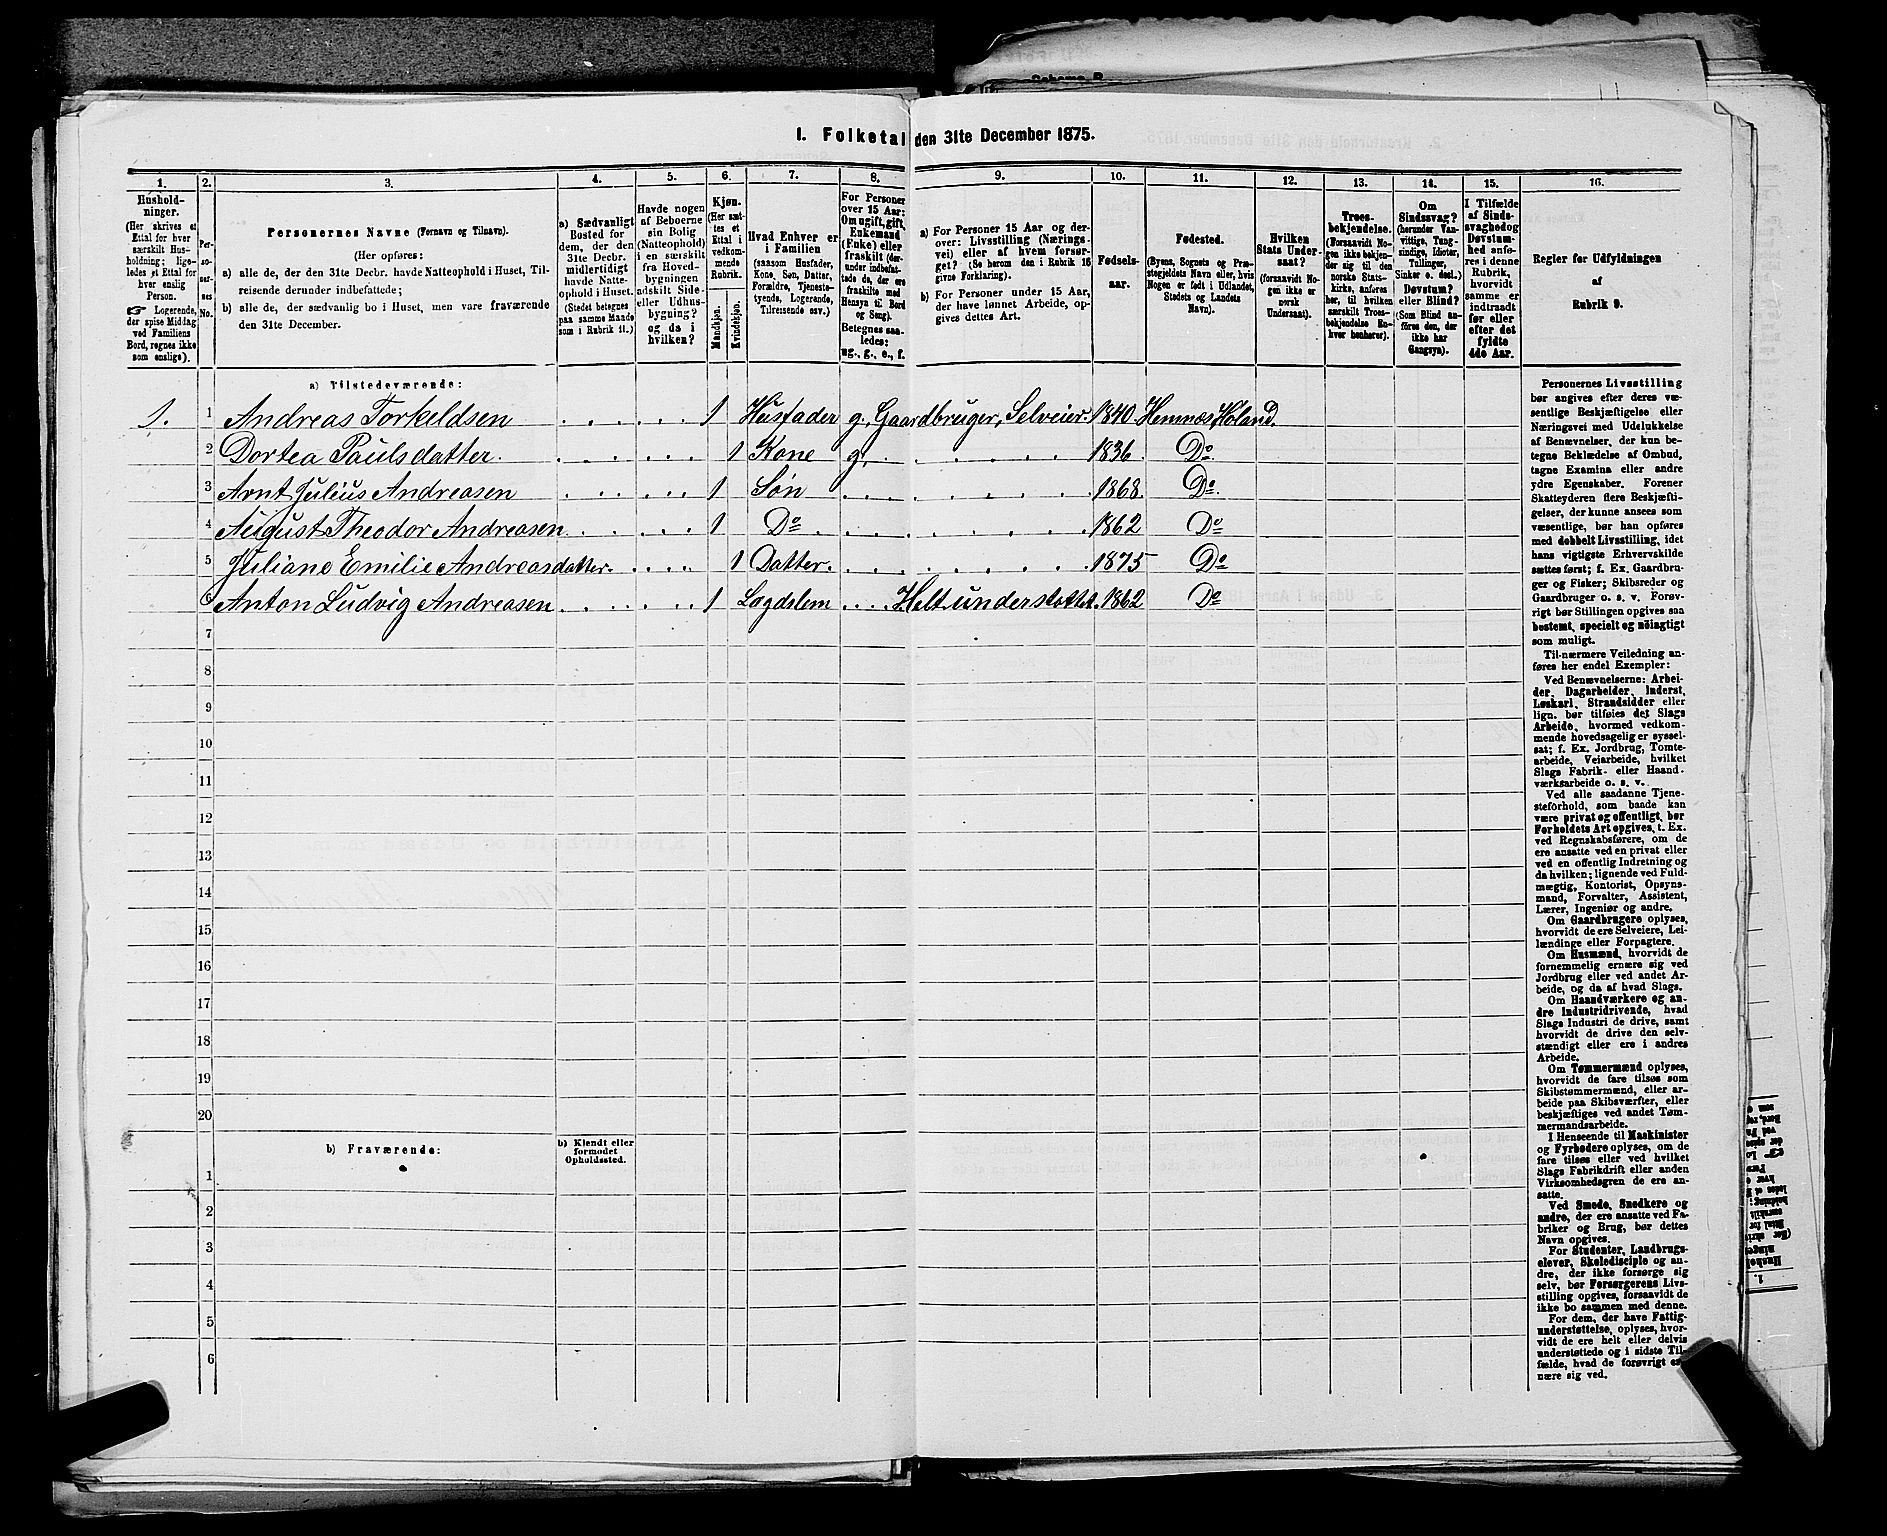 1. Folketal den 31te December 1875.
1.
2.
3.
4.
5.
6.
7.
8.
9.
10.
11.
12.
13.
14.
15.
16.
Hushold-
ninger.
(Her skrives et
Ettal for hver
særskilt Hus-
holdning; lige-
ledes et Ettal for
hver enslig
Person.
☞ Logerende,
der spise Middag
ved Familiens
Bord, regnes ikke
som enslige).
Per-
soner-
nes
No.
Personernes Navne (Fornavn og Tilnavn).
(Her opføres:
a) alle de, der den 31te Decbr. havde Natteophold i Huset, Til-
reisende derunder indbefattede;
b) alle de, der sædvanlig bo i Huset, men vare fraværende
den 31te December.
a) Sædvanligt
Bosted for
dem, der den
31te Decbr.
midlertidigt
havde Natte-
ophold i Huset.
(Stedet betegnes
paa samme Maade
som i Rubrik 11.)
Havde nogen
af Beboerne
sin Bolig
(Natteophold)
i en særskilt
fra Hoved-
bygningen
adskilt Side-
eller Udhus-
bygning?
og da i
hvilken?
Kjøn.
(Her sæt-
tes et
Ettal i
vedkom-
mende
Rubrik.
Mandkjøn.
Kvindekjøn.
Hvad Enhver er
i Familien
(saasom Husfader,
Kone, Søn, Datter,
Forældre, Tjeneste-
tyende, Logerende,
Tilreisende osv.)
For Personer
over 15 Aar:
Om ugift, gift,
Enkemand
(Enke) eller
fraskilt (der-
under indbefat-
tede de, der ere
fraskilte med
Hensyn til Bord
og Seng).
Betegnes saa-
ledes:
ug., g., e., f.
a) For Personer 15 Aar og der-
over: Livsstilling (Nærings-
vei) eller af hvem forsør-
get? (Se herom den i Rubrik 16
givne Forklaring).
b) For Personer under 15 Aar,
der have lønnet Arbeide, op-
gives dettes Art.
Fødsels-
aar.
Fødested.
(Byens, Sognets og Præ-
stegjeldets Navn eller, hvis
Nogen er født i Udlandet,
Stedets og Landets
Navn).
Hvilken
Stats Under-
saat?
(forsaavidt No-
gen ikke er
norsk
Undersaat).
Troes-
bekjendelse.
(Forsaavidt No-
gen ikke bekjen-
der sig til den
norske Stats-
kirke, anføres
her, til hvilken
særskilt Troes-
bekjendelse En-
hver henhører).
Om
Sindssvag?
(herunder Van-
vittige, Tung-
sindige, Idioter,
Tullinger,
Sinker o. desl.)
Døvstum?
eller Blind?
(Som Blind an-
føres den, der
ikke har
Gangsyn).
I Tilfælde
af Sinds-
svaghed og
Døvstum-
hed anfø-
res i denne
Rubrik,
hvorvidt
samme er
indtraadt
før eller
efter det
fyldte
4de Aar.
Regler for Udfyldningen
af
Rubrik 9.
a) Tilstedeværende:
1. 1 Andreas Torkeldsen 1 Husfader g. Gaardbruger, Selveier. 1840. Hemnæs, Høland.
2 Dortea Paulsdatter. 1 Kone g. 1836. Do
3 Arnt Julius Andreasen 1 Søn 1868. Do.
4 August Theodor Andreasen 1 Do 1862 Do
5 Juliane Emilie Andreasdatter. 1 Datter. 1875 Do
6 Anton Ludvig Andreasen 1 Lægdslem Helt understøttet. 1862 Do
7
8
9
10
11
12
13
14
15
16
17
18
19
20
b) Fraværende:
b) Kjendt eller
formodet
Opholdssted.
1
2
3
4
5
6
Personernes Livsstilling
bør angives efter deres væ-
sentlige Beskjæftigelse eller
Næringsvei med Udelukkelse
af Benævnelser, der kun be-
tegne Beklædelse af Ombud,
tagne Examina eller andre
ydre Egenskaber. Forener
Skatteyderen flere Beskjæfti-
gelser, der kunne ansees som
væsentlige, bør han opføres
med dobbelt Livsstilling, idet
hans vigtigste Erhvervskilde
sættes først; f. Ex. Gaardbru-
ger og Fisker; Skibsreder og
Gaardbruger o. s. v. Forøv-
rigt bør Stillingen opgives saa
bestemt, specielt og nøiagtigt
som muligt.
Til nærmere Veiledning an-
føres her endel Exempler:
Ved Benævnelserne: Arbei-
der, Dagarbeider, Inderst,
Løskarl, Strandsidder eller
lign. bør tilføies det Slags
Arbeide, hvormed vedkom-
mende hovedsagelig er syssel-
sat; f. Ex. Jordbrug, Tomte-
arbeide, Veiarbeide, hvilket
Slags Fabrik- eller Haand-
værksarbeide o. s. v.
Ved alle saadanne Tjene-
steforhold, som baade kan
være privat og offentligt, bør
Forholdets Art opgives, t. Ex.
ved Regnskabsførere, om de
ere ansatte ved en privat eller
ved en offentlig Indretning og
da hvilken; lignende ved Fuld-
mægtig, Kontorist, Opsyns-
mand, Forvalter, Assistent,
Lærer, Ingeniør og andre.
Om Gaardbrugere oplyses,
hvorvidt de ere Selveiere, Lei-
lændinge eller Forpagtere.
Om Husmænd, hvorvidt de
fornemmelig ernære sig ved
Jordbrug eller ved andet Ar-
beide, og da af hvad Slags.
Om Haandværkere og an-
dre Industridrivende, hvad
Slags Industri de drive, samt
hvorvidt de drive den selv-
stændigt eller ere i andres
Arbeide.
Om Tømmermænd oplyses,
hvorvidt de fare tilsøs som
Skibstømmermænd, eller ar-
beide paa Skibsværfter, eller
beskjæftiges ved andet Tøm-
mermandsarbeide.
I Henseende til Maskinister
og Fyrbødere oplyses, om de
fare tilsøs eller ved hvilket
Slags Fabrikdrift eller anden
Virksomhedsgren de ere an-
satte.
Ved Smede, Snedkere og
andre, der ere ansatte ved Fa-
briker og Brug, bør dettes
Navn opgives.
For Studenter, Landbrugs-
elever, Skoledisciple og an-
dre, der ikke forsørge sig
selv, bør Forsørgerens Livs-
stilling opgives, forsaavidt de
ikke bo sammen med denne.
For dem, der have Fattig-
understøttelse, oplyses, hvor-
vidt de ere helt eller delvis
understøttede og i sidste Til-
fælde, hvad de forøvrigt er-
nære sig ved.